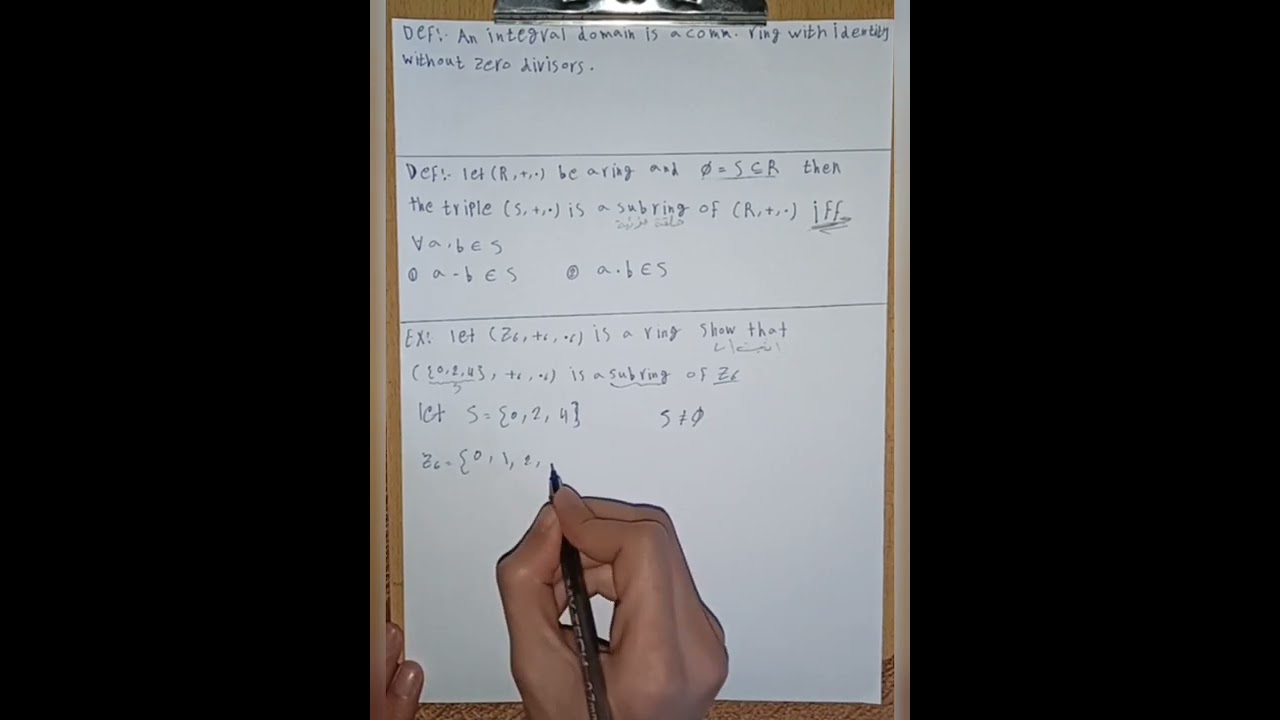 Def:- An integral domain is a comm. ring with identity
without zero divisors.
Def:- let (R,+,·) be a ring and ∅ = S ⊆ R then
the triple (S,+,·) is a subring of (R,+,·) iff
حلقة جزئية
∀ a,b ∈ S
① a - b ∈ S ② a · b ∈ S
EX: let (Z₆, +₆, ·₆) is a ring show that
({0,2,4}, +₆, ·₆) is a subring of Z₆
S
let S = {0, 2, 4} S ≠ ∅
Z₆ = {0, 1, 2,